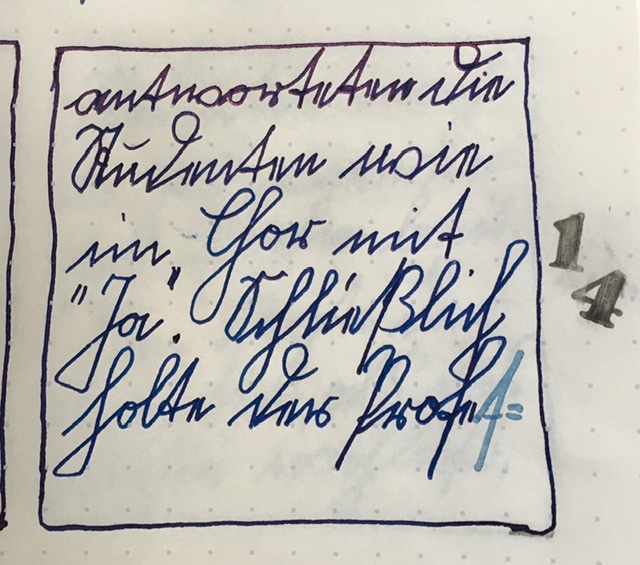 antworteten die
Studenten wie
im Chor mit
"Ja". Schließlich
holte der Profes=
14